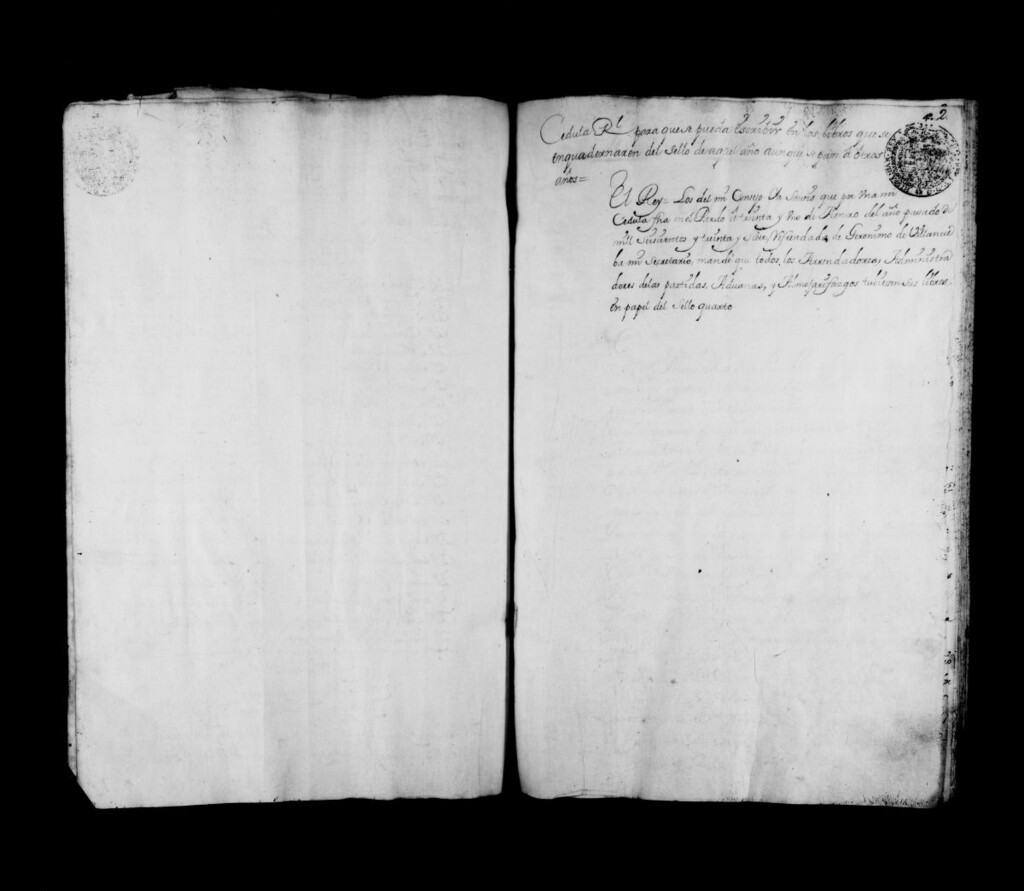 2
Cedula Rl para que se pueda escribir en los libros que se
enquadernaren del sello de aquel año aunque sepan a otros
años=
El Rey= Los del mi Consejo que por una mi
Cedula fha en el Pardo a treinta y uno de Henero del año pasado de
mill seiscientos y treinta y siete Refrendada de Geronimo de Villanue
ba mi Secretario, mande que todos los Arrendadores, Administra
dores de las partidas, Aduanas, y Almojarifazgos tubiesen sus libros
en papel del sello quarto